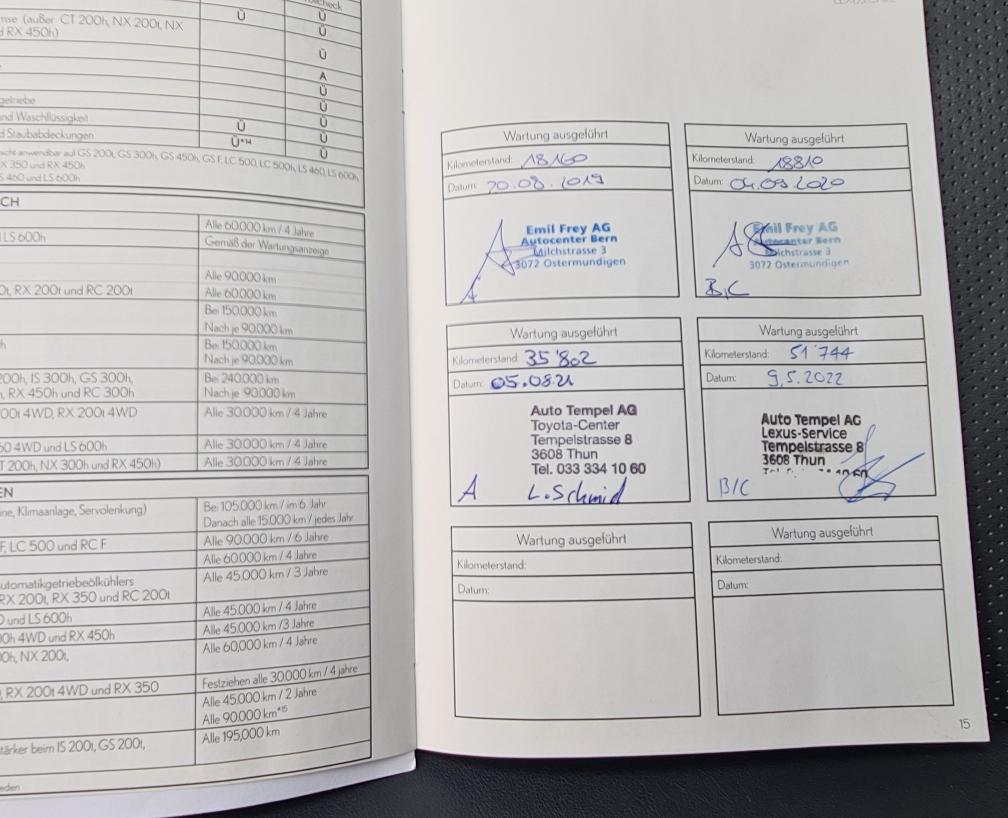 Ü Ü
nse (außer CT 200h, NX 200t, NX
d RX 450h) Ü
Ü
A
getriebe Ü
und Waschflüssigkeit Ü
d Staubabdeckungen Ü Ü
Ü*14 Ü
nicht anwendbar auf GS 200t, GS 300h, GS 450h, GS F, LC 500, LC 500h, LS 460, LS 600h
X 350 und RX 450h
S 460 und LS 600h
CH
Alle 60.000 km / 4 Jahre
LS 600h Gemäß der Wartungsanzeige
Alle 90.000 km
0t, RX 200t und RC 200t Alle 60.000 km
Bei 150.000 km
Nach je 90.000 km
h Bei 150.000 km
Nach je 90.000 km
200h, IS 300h, GS 300h, Bei 240.000 km
, RX 450h und RC 300h Nach je 90.000 km
00t 4WD, RX 200t 4WD Alle 30.000 km / 4 Jahre
50 4WD und LS 600h Alle 30.000 km / 4 Jahre
T 200h, NX 300h und RX 450h) Alle 30.000 km / 4 Jahre
EN
ine, Klimaanlage, Servolenkung) Bei 105.000 km / im 6. Jahr
Danach alle 15.000 km / jedes Jahr
F, LC 500 und RC F Alle 90.000 km / 6 Jahre
Alle 60.000 km / 4 Jahre
utomatikgetriebeölkühlers Alle 45.000 km / 3 Jahre
RX 200t, RX 350 und RC 200t
D und LS 600h Alle 45.000 km / 4 Jahre
00h 4WD und RX 450h Alle 45.000 km /3 Jahre
00h, NX 200t, Alle 60,000 km / 4 Jahre
, RX 200t 4WD und RX 350 Festziehen alle 30.000 km / 4 jahre
Alle 45.000 km / 2 Jahre
Alle 90.000 km*15
tärker beim IS 200t, GS 200t, Alle 195,000 km
Wartung ausgeführt
Kilometerstand: 18160
Datum: 20.08.2019
Emil Frey AG
Autocenter Bern
Milchstrasse 3
3072 Ostermundigen
A
Wartung ausgeführt
Kilometerstand: 18810
Datum: 04.09.2020
Emil Frey AG
Autocenter Bern
Milchstrasse 3
3072 Ostermundigen
B,C
Wartung ausgeführt
Kilometerstand: 35'802
Datum: 05.08.21
Auto Tempel AG
Toyota-Center
Tempelstrasse 8
3608 Thun
Tel. 033 334 10 60
A L.Schmid
Wartung ausgeführt
Kilometerstand: 51'744
Datum: 9.5.2022
Auto Tempel AG
Lexus-Service
Tempelstrasse 8
3608 Thun
B/C
Wartung ausgeführt
Kilometerstand:
Datum:
Wartung ausgeführt
Kilometerstand:
Datum:
15